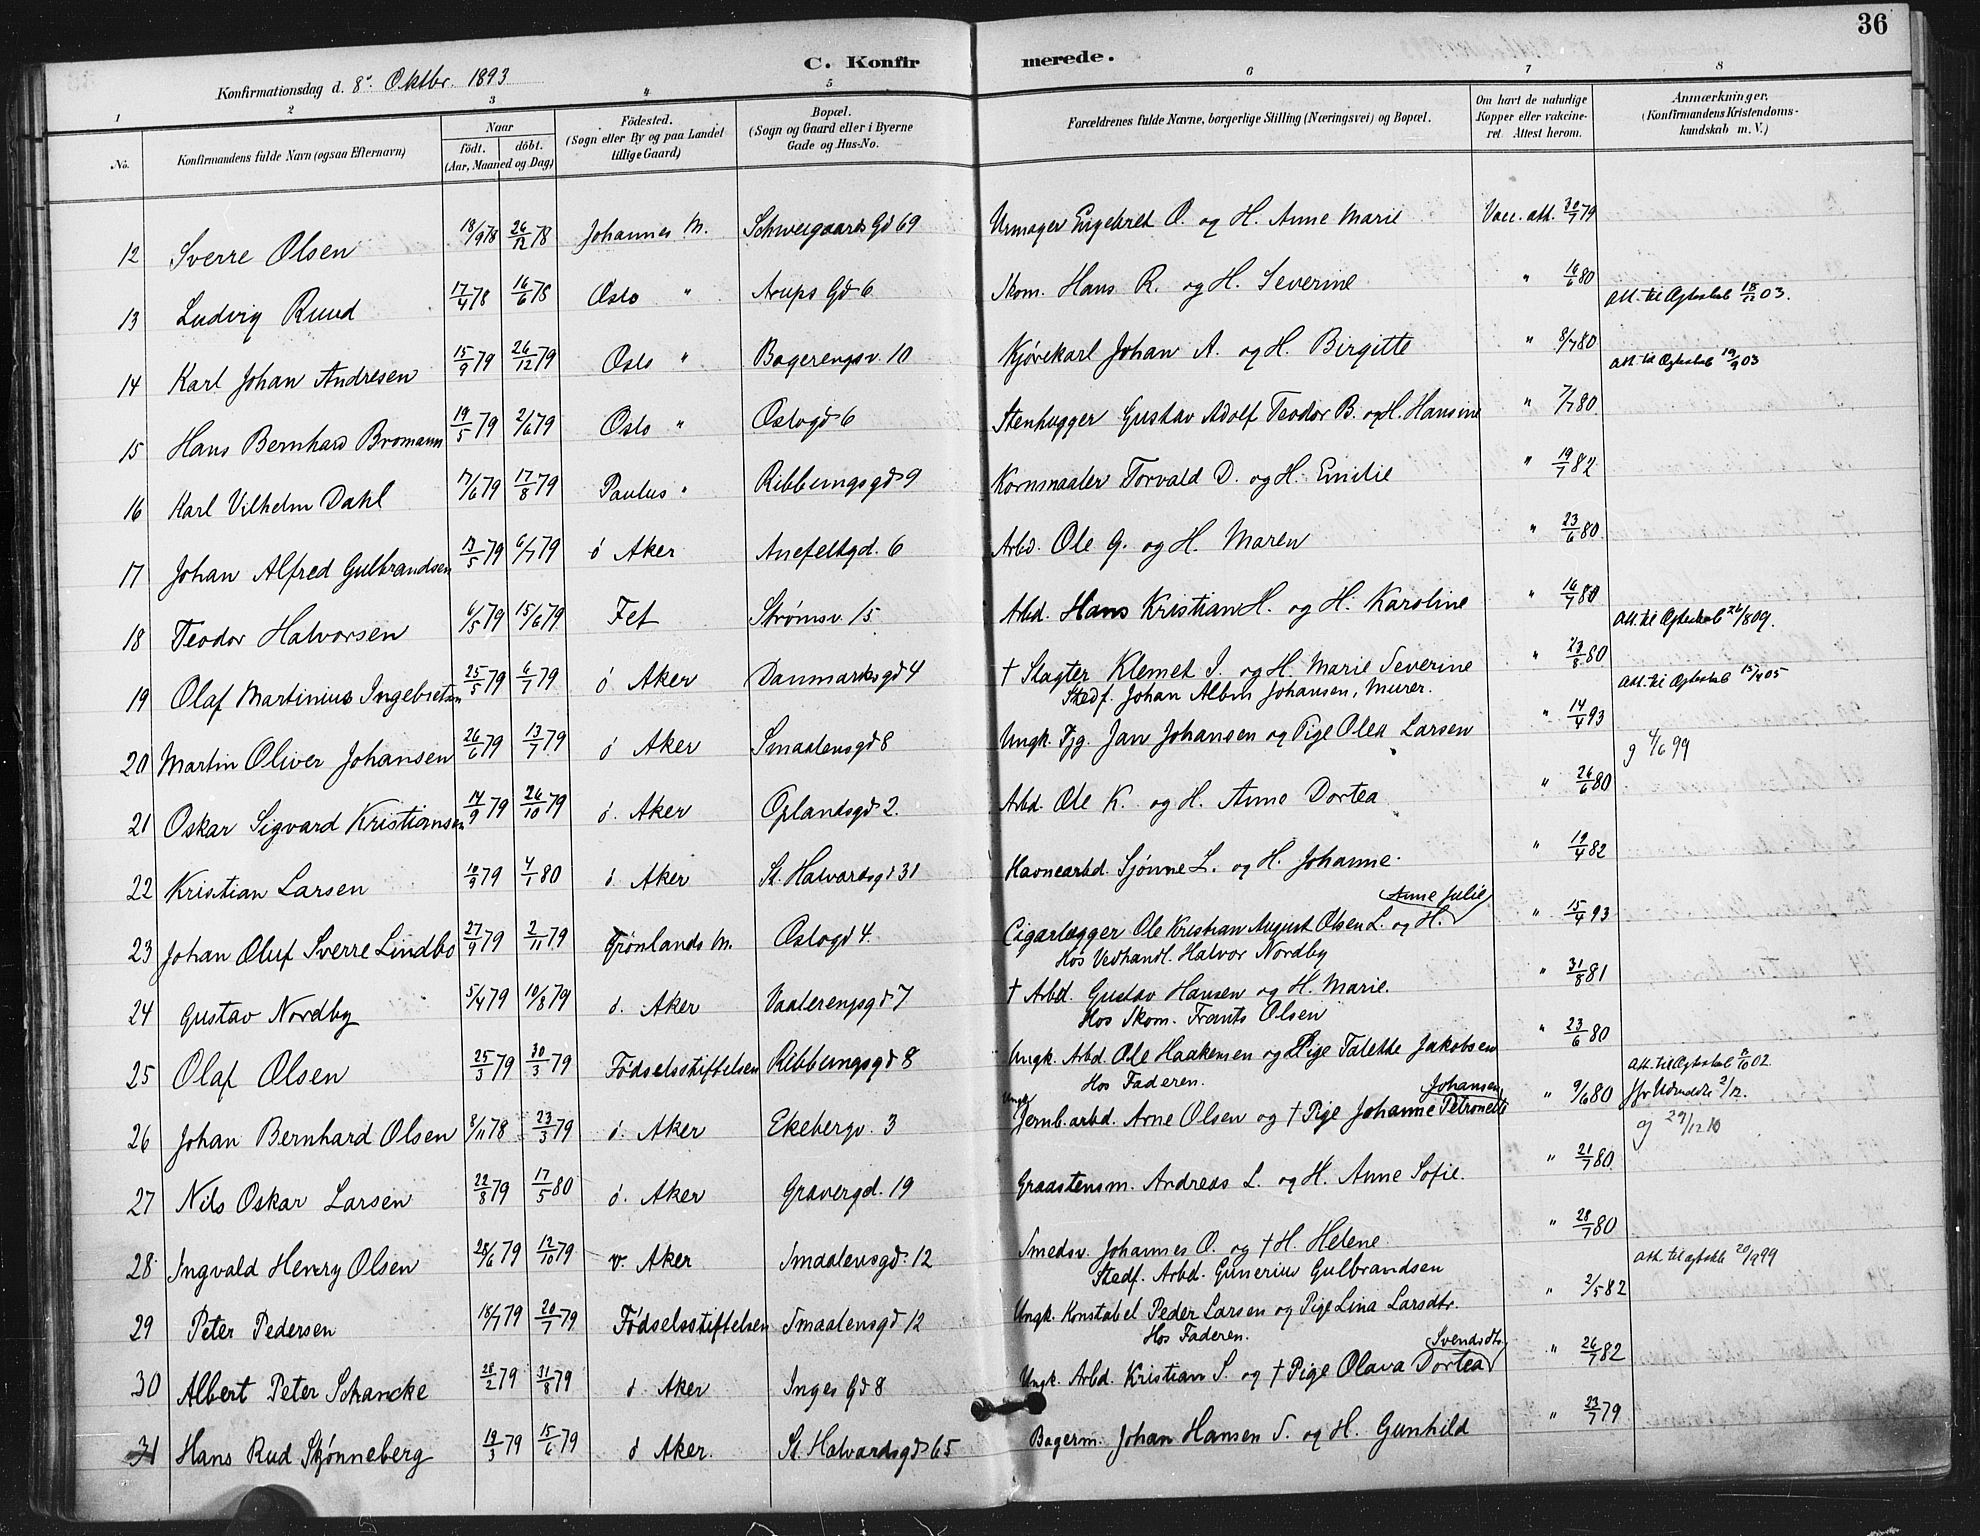 36
Konfirmationsdag d. 8de Oktbr. 1893
C. Konfirmerede.
1 2 3 4 5 6 7 8
No.
Konfirmandens fulde Navn (ogsaa Efternavn)
Naar
födt. döbt.
(Aar, Maaned og Dag)
Födested.
(Sogn eller By og paa Landet
tillige Gaard)
Bopæl.
(Sogn og Gaard eller i Byerne
Gade og Hus-No.
Forældrenes fulde Navne, borgerlige Stilling (Næringsvei) og Bopæl.
Om havt de naturlige
Kopper eller vakcine-
ret Attest herom.
Anmærkninger.
(Konfirmandens Kristendoms-
kundskab m. V.)
12 Sverre Olsen 18/9 78 26/12 78 Johannes M. Schweigaards Gd 69 Urmager Engebret O. og H. Anne Marie Vacc. att. 30/7 79
13 Ludvig Ruud 17/4 78 16/6 78 Oslo " Arups Gd 6 Skom. Hans R. og H. Severine " 16/6 80 Att. til Ægteskab 18/12 03.
14 Karl Johan Andresen 15/9 79 26/12 79 Oslo " Bogerengsv. 10 Kjørekarl Johan A. og H. Birgitte " 8/7 80 Att. til Ægteskab 19/9 03
15 Hans Bernhard Bromann 19/5 79 2/6 79 Oslo " Oslogd 6 Stenhugger Gustav Adolf Teodor B. og H. Hansine " 7/7 80
16 Karl Vilhelm Dahl 17/6 79 17/8 79 Paulus " Ribbungsgd 9 Kornmaaler Torvald D. og H. Emilie " 19/7 82
17 Johan Alfred Gulbrandsen 13/5 79 6/7 79 ö Aker Anefeltgd. 6 Arbd. Ole G. og H. Maren " 23/6 80
18 Teodor Halvorsen 6/5 79 15/6 79 Fet Strømsv. 15 Arbd. Hans Kristian H. og H. Karoline " 16/7 80 Att. til Ægteskab 26/8 09.
19 Olaf Martinius Ingebretsen 25/5 79 6/7 79 ö Aker Danmarksgd 4 † Slagter Klemet I. og H. Marie Severine " 13/8 80 Att. til Ægteskab 15/4 05
Stedf. Johan Albin Johansen, Murer.
20 Martin Oliver Johansen 26/6 79 13/7 79 ö Aker Smaalensgd 8 Ungk. Tjg. Jan Johansen og Pige Olea Larsen " 14/4 93 g 4/6 99
21 Oskar Sigvard Kristiansen 14/9 79 26/10 79 ö. Aker Oplandsgd 2. Arbd. Ole K. og H. Anne Dortea " 26/6 80
22 Kristian Larsen 10/9 79 4/1 80 ö. Aker St. Halvardsgd 31 Havnearbd. Sjønne L. og H. Johanne. " 19/4 82
23 Johan Oluf Sverre Lindbo 27/9 79 2/11 79 Grønlands M. Oslogd 4. Cigarlægger Ole Kristian August Olsen L. og H. Anne Julie " 15/4 93
Hos Vedhandl. Halvor Nordby
24 Gustav Nordby 5/4 79 10/8 79 ö. Aker Vaalerengsgd 7 † Arbd. Gustav Hansen og H. Marie. " 31/8 81
Hos Skom. Frants Olsen
25 Olaf Olsen 25/3 79 30/3 79 Fødselsstiftelsen Ribbungsgd 8 Ungk. Arbd. Ole Haakensen og Pige Talette Jakobsen " 23/6 80 Att. til Ægteskab 8/10 02.
Hos Faderen.
26 Johan Bernhard Olsen 8/11 78 23/3 79 ö. Aker Ekebergv. 3 Ungk. Jernb. arbd. Arne Olsen og † Pige Johanne Petronelle Johansen " 9/6 80 g 29/12 10
27 Nils Oskar Larsen 22/8 79 17/5 80 ö. Aker Gravergd. 19 Graastensm. Andreas L. og H. Anne Sofie. " 21/7 80
28 Ingvald Henry Olsen 28/6 79 12/10 79 v. Aker Smaalensgd. 12 Smedsv. Johannes O. og † H. Helene " 28/7 80 Att. til Ægtesk 20/9 99
Stedf. Arbd. Gunerius Gulbrandsen
29 Peter Pedersen 18/7 79 20/7 79 Fødselsstiftelsen Smaalensgd 12 Ungk. Konstabel Peder Larsen og Pige Lina Larsdtr. " 2/5 82
Hos Faderen.
30 Albert Peter Schancke 28/2 79 31/8 79 ö Aker Inges Gd 8 Ungk. Arbd. Kristian S. og † Pige Olava Dortea Svendsdtr. " 26/7 82
31 Hans Rud Skjønneberg 19/3 79 15/6 79 ö Aker. St. Halvardsgd 65 Bagerm. Johan Hansen S. og H. Gunhild " 23/7 79